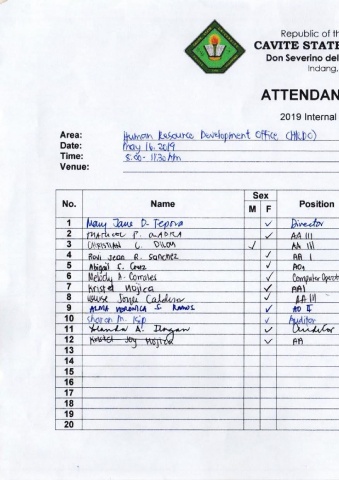 Republic of th
CAVITE STATE
Don Severino del
Indang,
ATTENDAN
2019 Internal
Area: Human Resource Development Office (HRDO)
Date: May 16, 2019
Time: 8:00 - 11:30 AM
Venue:
No. Name Sex Position
M F
1 Mary Jane D. ✓ Director
2 P. ✓ AA III
3 CHRISTIAN C. ✓ AA III
4 Roni Jean R. Sanchez ✓ AA I
5 Abigail S. Cruz ✓ AO1
6 Melody A. Corrales ✓ Computer Operato
7 Kristel Mojica ✓ AA I
8 Louise Jorge Caldera ✓ AA III
9 ALMA VERONICA S. RAMOS ✓ AO II
10 Sharon M. ✓ Auditor
11 Yolanda A. Ilagan ✓ Auditor
12 Kristel Joy Mojica ✓ AA
13
14
15
16
17
18
19
20